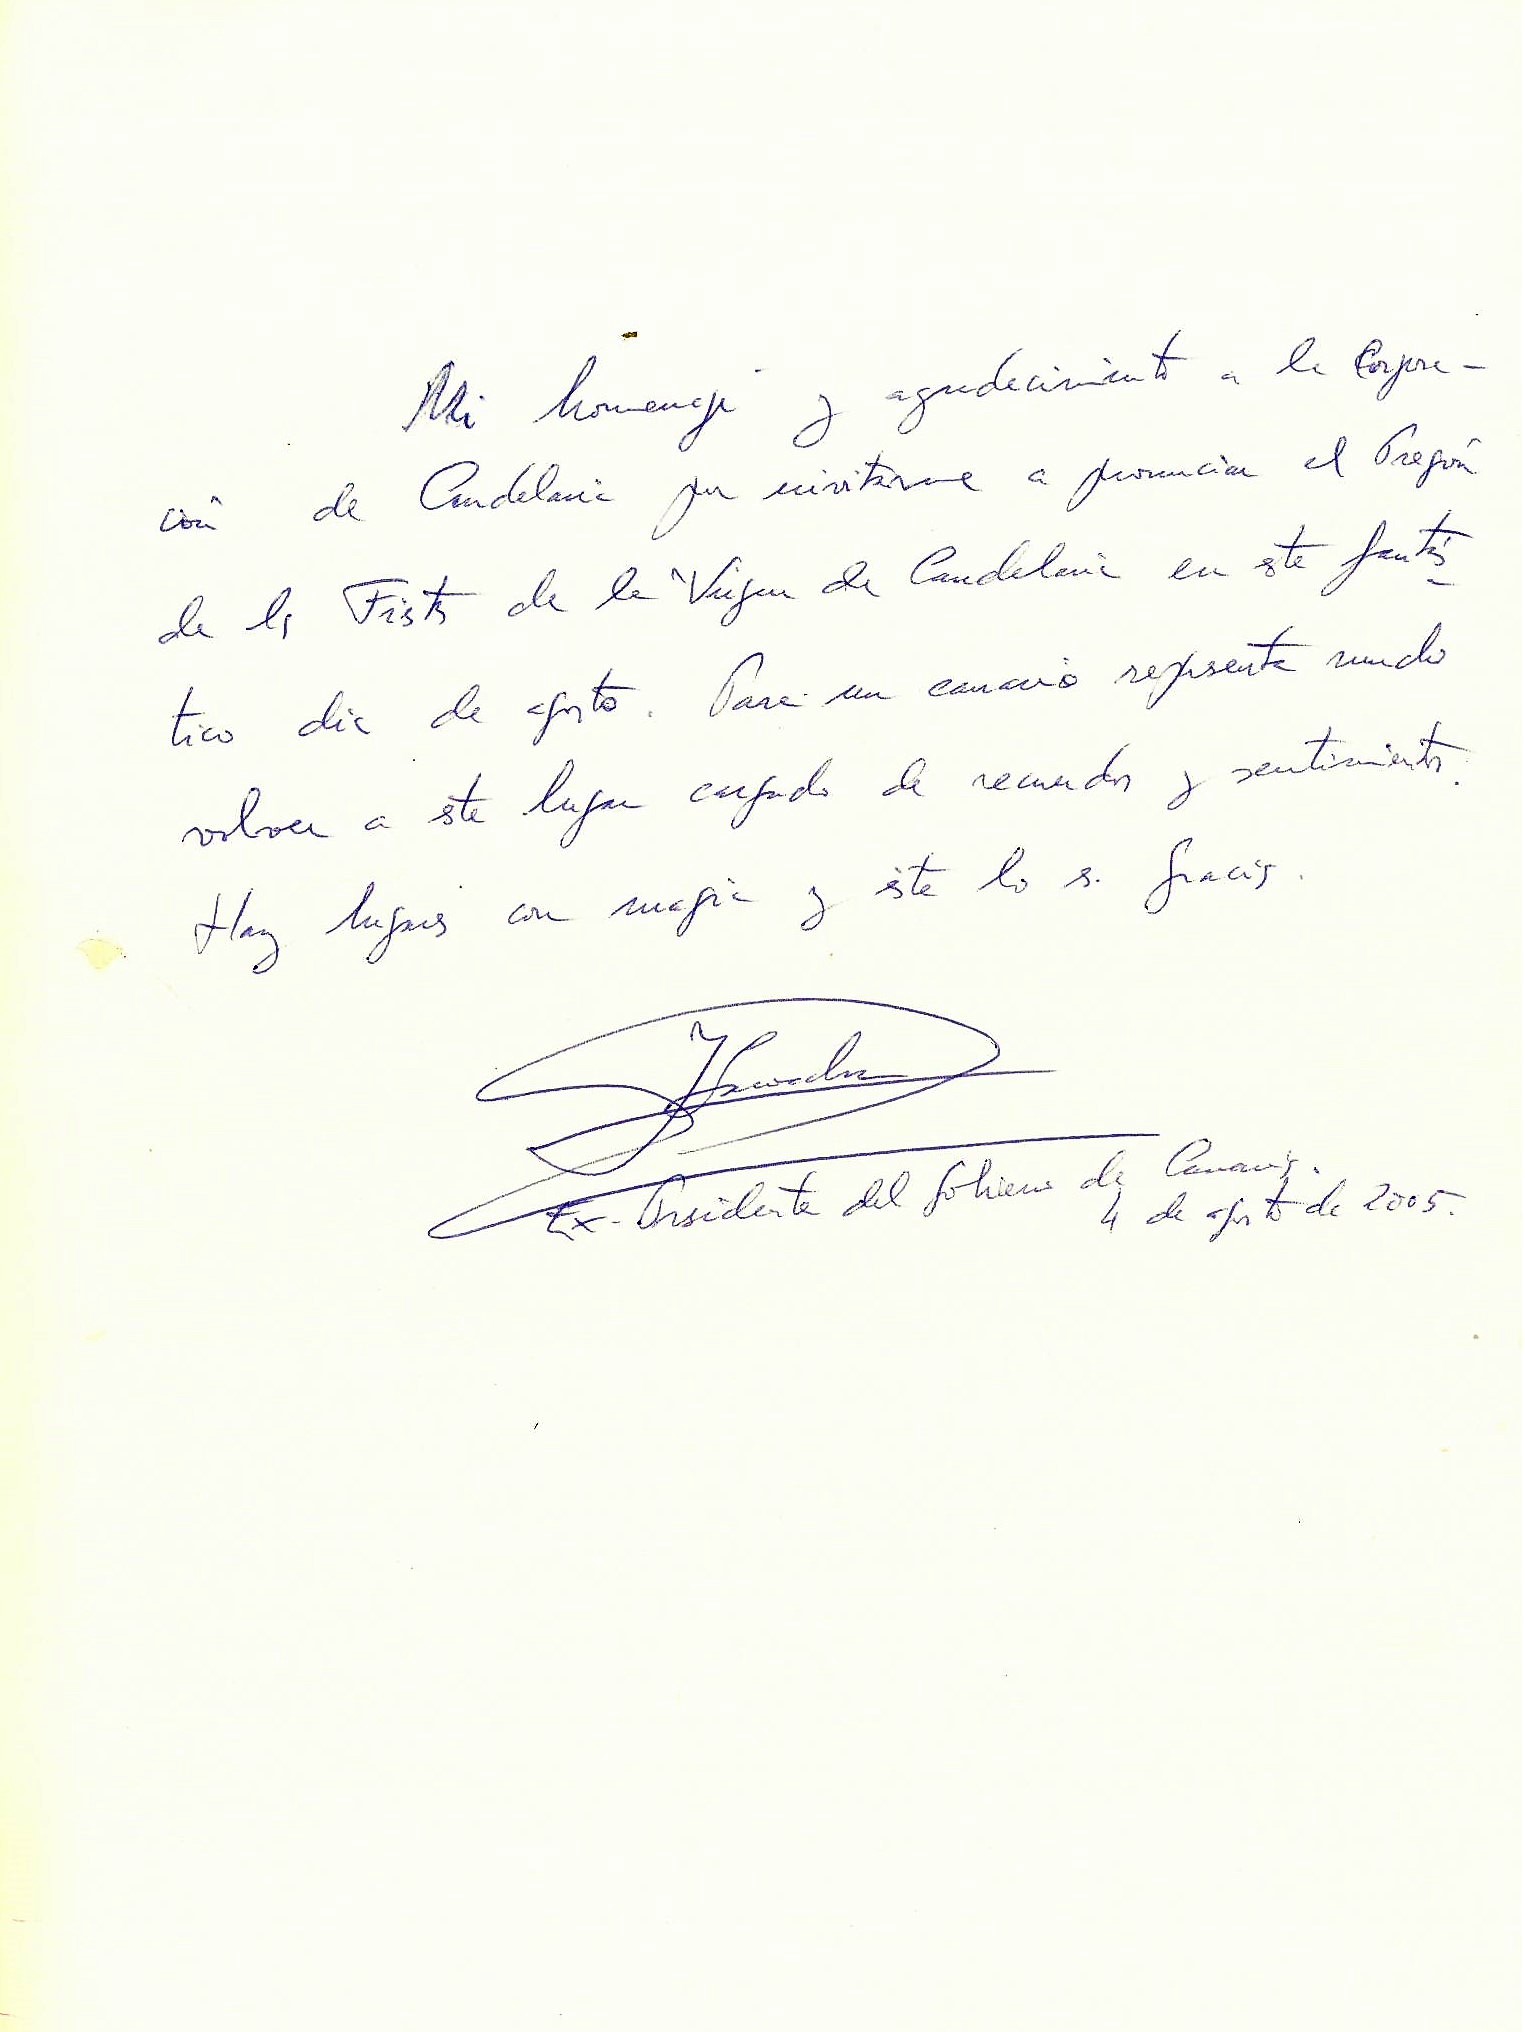 Mi homenaje y agradecimiento a la Corpora-
ción de Candelaria por invitarme a pronunciar el Pregón
de las Fiestas de la Virgen de Candelaria en este fantás-
tico día de agosto. Para un canario representa mucho
volver a este lugar cargado de recuerdos y sentimientos.
Hay lugares con magia y éste lo es. Gracias.
Ex-Presidente del Gobierno de Canarias.
4 de agosto de 2005.